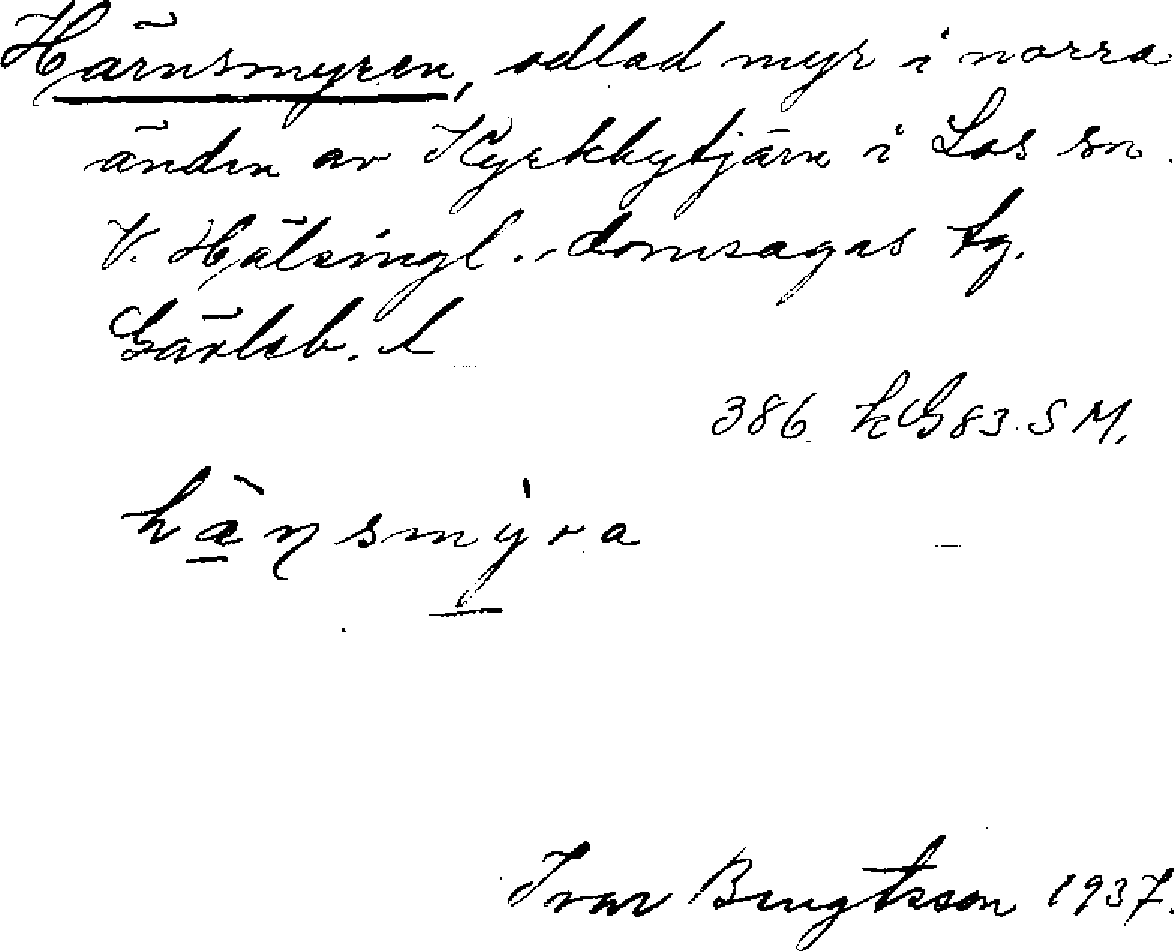 Härnsmyren, odlad myr i norra
ändin av Kyrkbytjärn i Los sn.
V. Hälsingl.-domsagas tg.
Gävleb. l
386 kG83.SM.
hæ̀ṇsmýra
Ivar Bengtsson 1937.